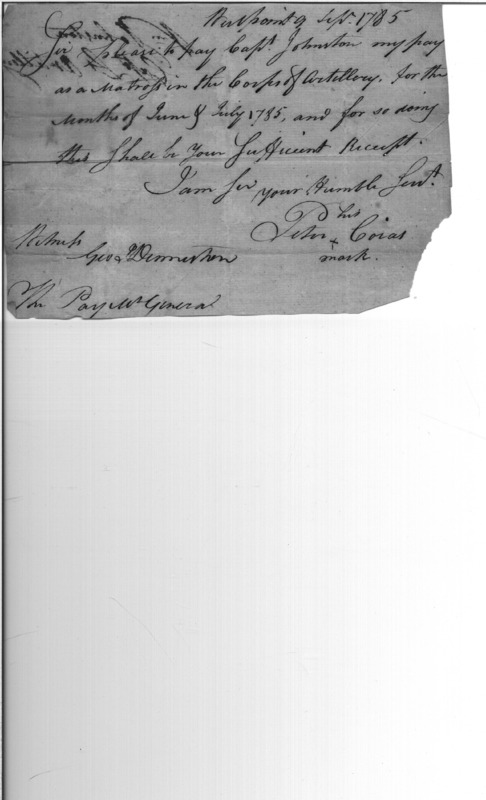 Westpoint 9 Sept. 1785
Sir please to pay Capt. Johnston my pay
as a Matross in the Corps of Artillery, for the
Months of June & July 1785, and for so doing
this Shall be Your Sufficient Receipt.
I am Sir, your Humble Servt.
his
Peter x Coras
mark.
Witness
Geo. Denniston
The Pay Mr General